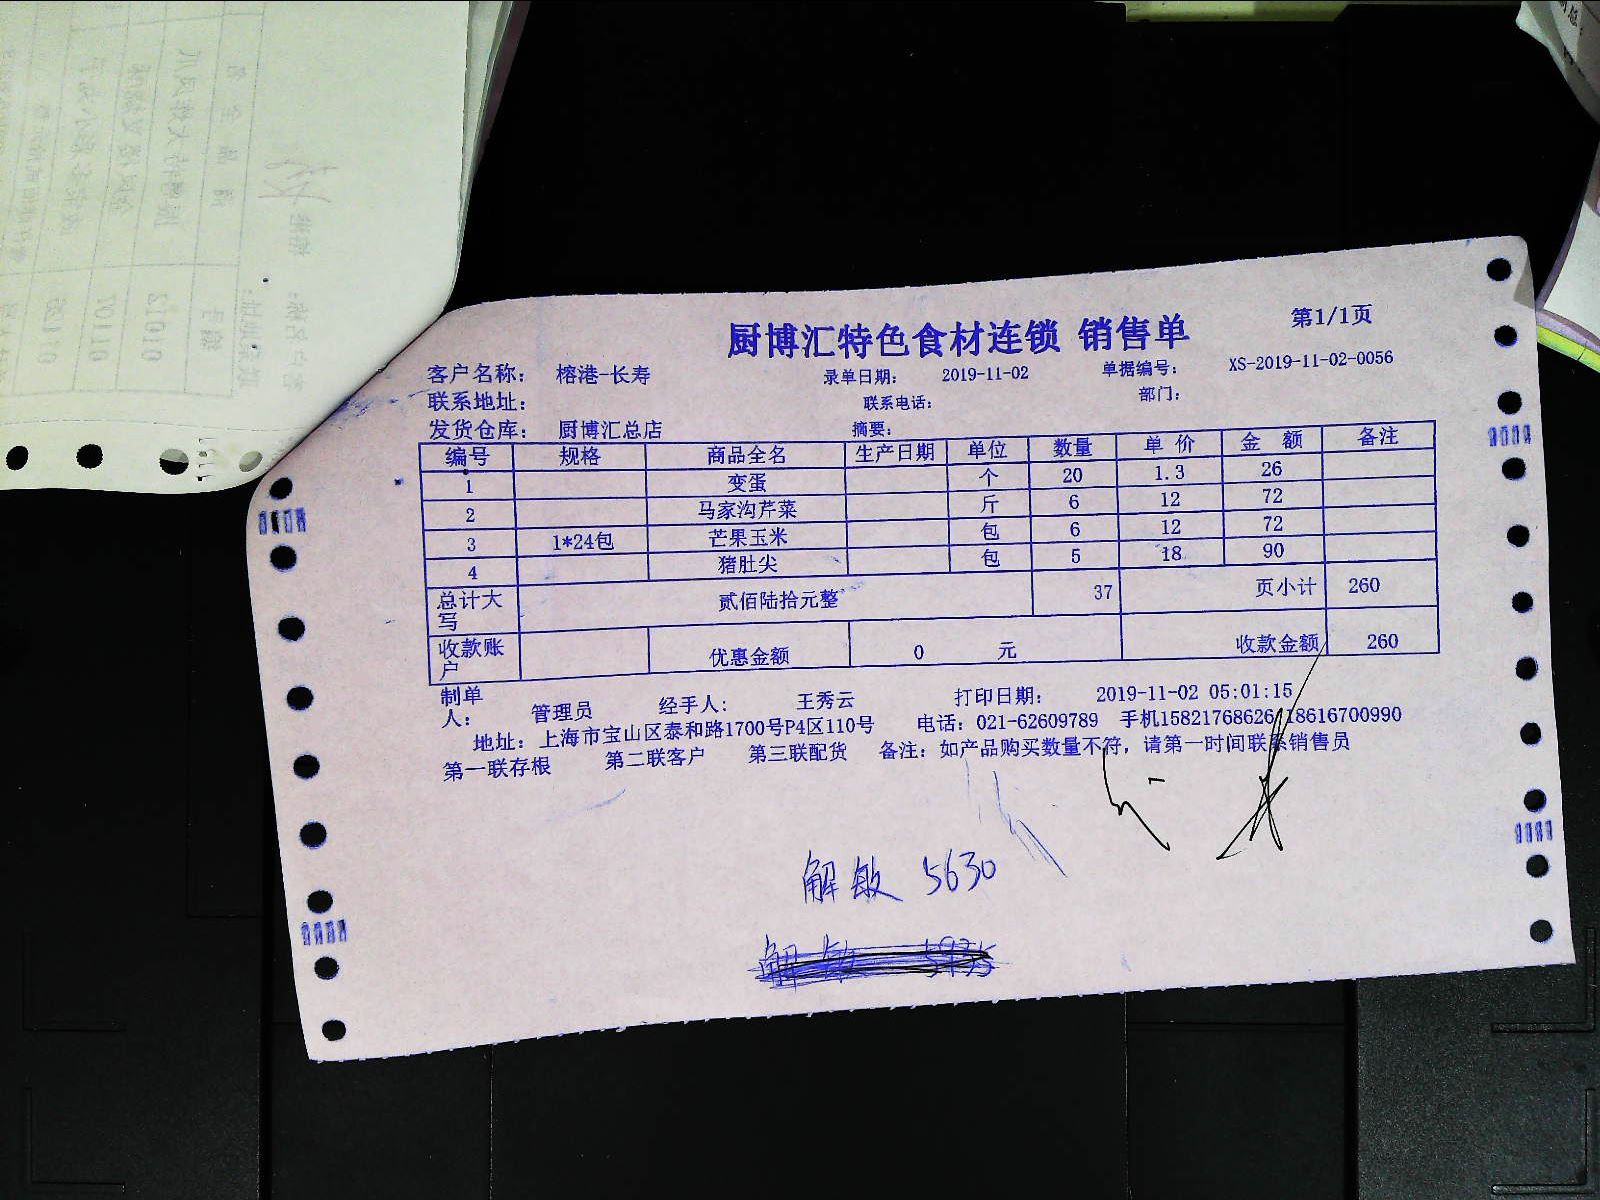 厨博汇特色食材连锁 销售单
第1/1页
客户名称: 榕港-长寿 录单日期: 2019-11-02 单据编号: XS-2019-11-02-0056
联系地址: 联系电话: 部门:
发货仓库: 厨博汇总店 摘要:
编号 规格 商品全名 生产日期 单位 数量 单价 金额 备注
1 变蛋 个 20 1.3 26
2 马家沟芹菜 斤 6 12 72
3 1*24包 芒果玉米 包 6 12 72
4 猪肚尖 包 5 18 90
总计大写 贰佰陆拾元整 37 页小计 260
收款账户 优惠金额 0 元 收款金额 260
制单人: 管理员 经手人: 王秀云 打印日期: 2019-11-02 05:01:15
地址: 上海市宝山区泰和路1700号P4区110号 电话: 021-62609789 手机15821768626 18616700990
第一联存根 第二联客户 第三联配货 备注: 如产品购买数量不符, 请第一时间联系销售员
解敏 5630